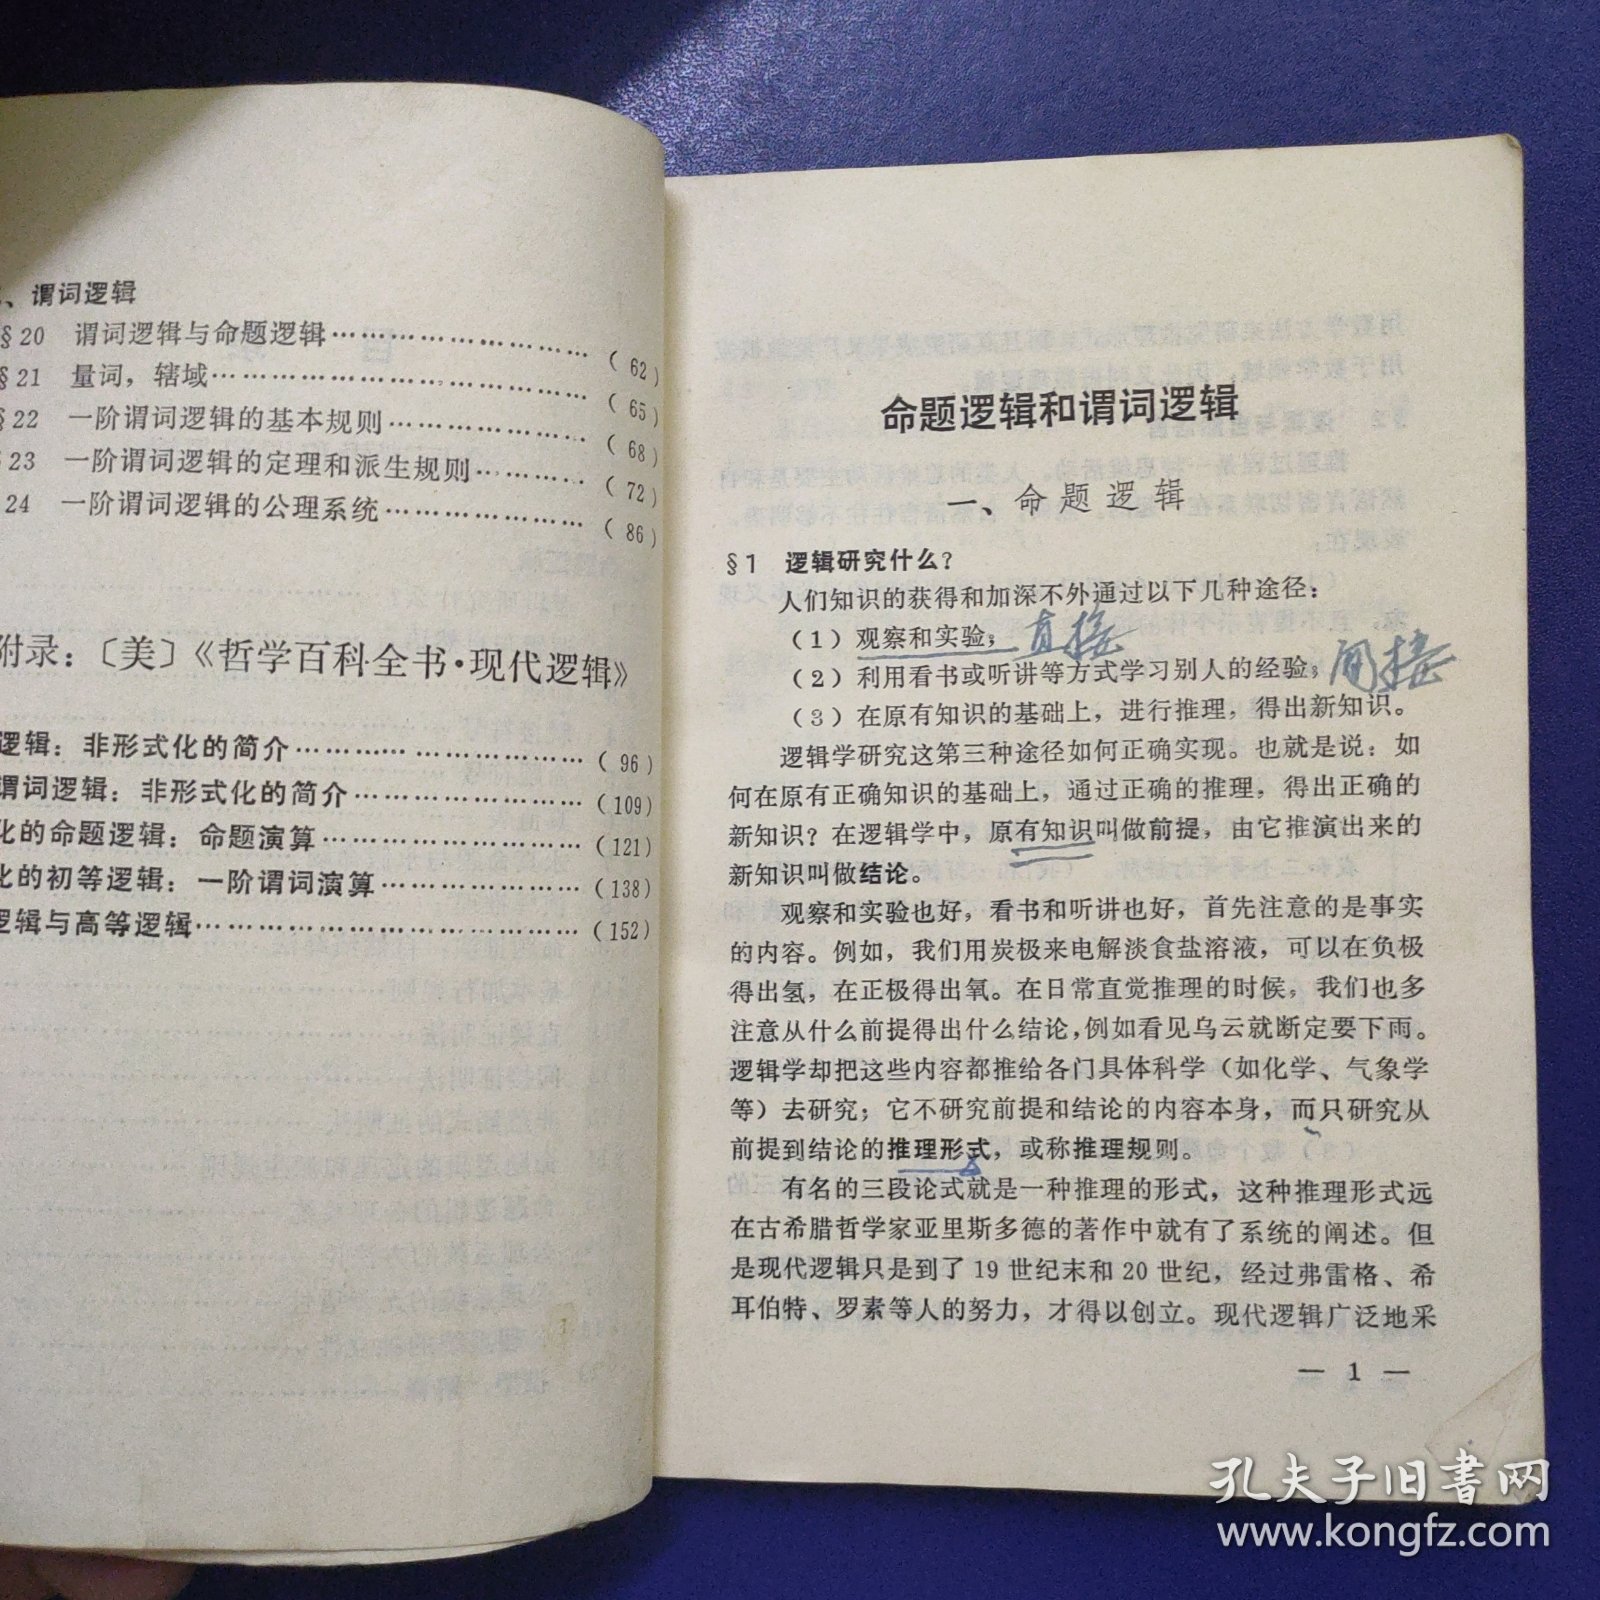 、谓词逻辑
§20 谓词逻辑与命题逻辑……………………………(62)
§21 量词，辖域……………………………………(65)
§22 一阶谓词逻辑的基本规则……………………(68)
23 一阶谓词逻辑的定理和派生规则…………(72)
24 一阶谓词逻辑的公理系统…………………(86)
附录：〔美〕《哲学百科全书·现代逻辑》
逻辑：非形式化的简介……………………………(96)
谓词逻辑：非形式化的简介………………………(109)
化的命题逻辑：命题演算…………………………(121)
化的初等逻辑：一阶谓词演算……………………(138)
逻辑与高等逻辑……………………………………(152)
命题逻辑和谓词逻辑
一、命题逻辑
§1 逻辑研究什么？
人们知识的获得和加深不外通过以下几种途径：
（1）观察和实验； 直接
（2）利用看书或听讲等方式学习别人的经验； 间接
（3）在原有知识的基础上，进行推理，得出新知识。
逻辑学研究这第三种途径如何正确实现。也就是说：如
何在原有正确知识的基础上，通过正确的推理，得出正确的
新知识？在逻辑学中，原有知识叫做前提，由它推演出来的
新知识叫做结论。
观察和实验也好，看书和听讲也好，首先注意的是事实
的内容。例如，我们用炭极来电解淡食盐溶液，可以在负极
得出氢，在正极得出氧。在日常直觉推理的时候，我们也多
注意从什么前提得出什么结论，例如看见乌云就断定要下雨。
逻辑学却把这些内容都推给各门具体科学（如化学、气象学
等）去研究；它不研究前提和结论的内容本身，而只研究从
前提到结论的推理形式，或称推理规则。
有名的三段论式就是一种推理的形式，这种推理形式远
在古希腊哲学家亚里斯多德的著作中就有了系统的阐述。但
是现代逻辑只是到了19世纪末和20世纪，经过弗雷格、希
耳伯特、罗素等人的努力，才得以创立。现代逻辑广泛地采
— 1 —
孔夫子旧书网
www.kongfz.com